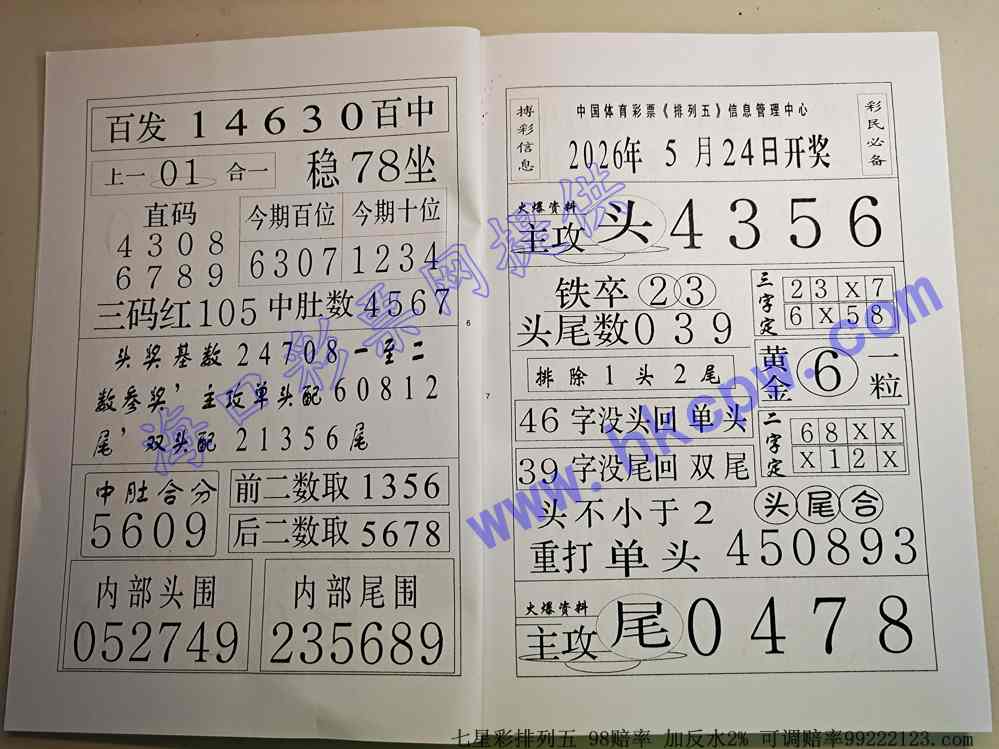 百发 14630 百中
上一 01 合一
稳 78 坐
直码
4308
6789
今期百位
6307
今期十位
1234
三码红105 中肚数 4567
头奖基数 24708 一至二
数参奖’主攻单头配 60812
尾’双头配 21356 尾
中肚合分
5609
前二数取 1356
后二数取 5678
内部头围
052749
内部尾围
235689
6
7
搏彩信息
中国体育彩票《排列五》信息管理中心
2026年 5 月 24日开奖
彩民必备
火爆资料
主攻 头 4356
铁卒 ②③
头尾数 039
三字定
2 3 X 7
6 X 5 8
排除 1 头 2 尾
黄金 6 一粒
46 字没头回 单头
39 字没尾回 双尾
二字定
6 8 X X
X 1 2 X
头不小于 2
头尾合
重打 单头 450893
火爆资料
主攻 尾 0478
海口彩票网提供
www.hkcpw.com
七星彩排列五 98赔率 加反水2% 可调赔率99222123.com